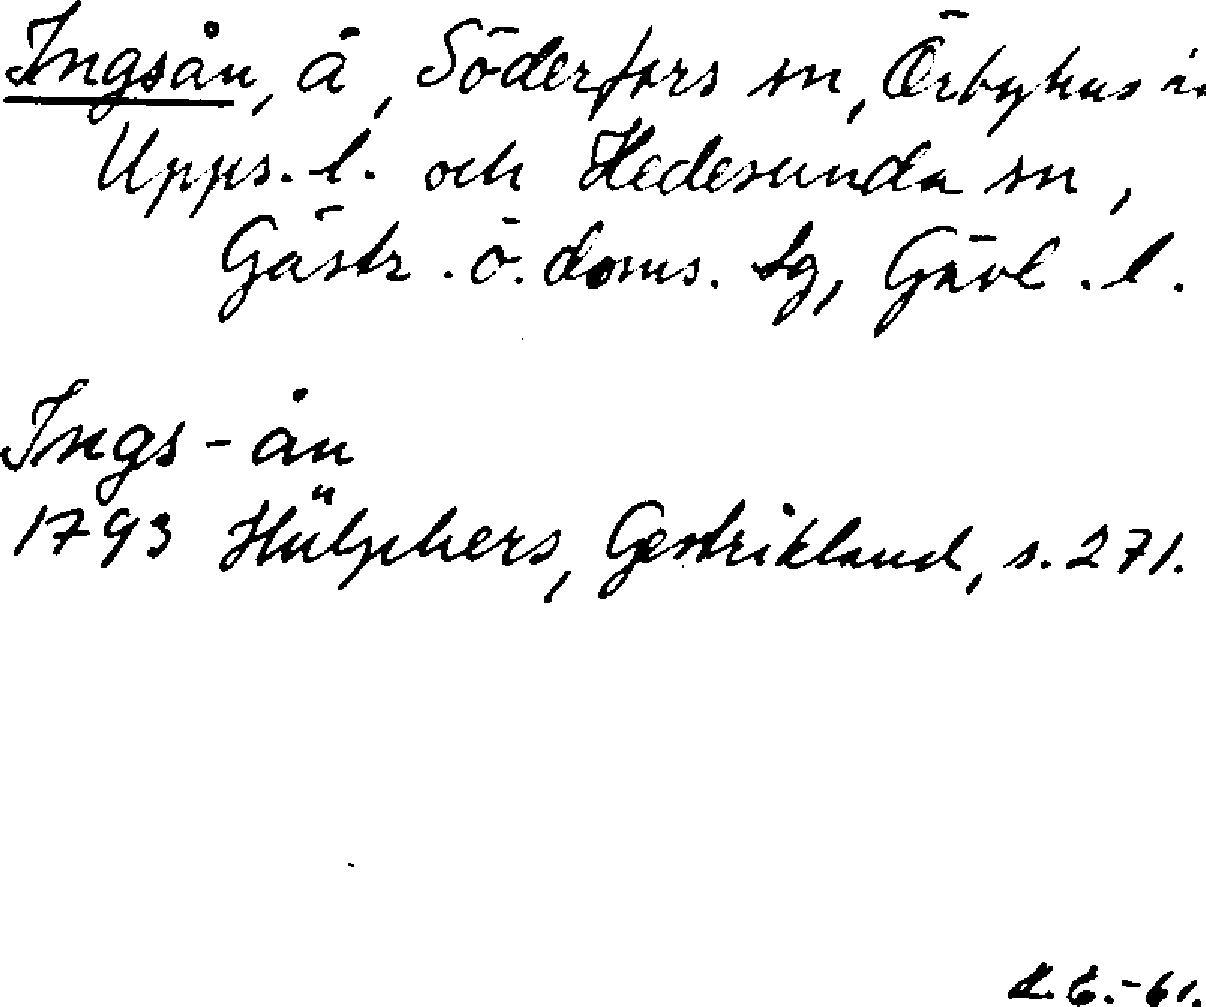 Ingsån, å, Söderfors sn, Örbyhus
Upps. l. och Hedesunda sn,
Gästr. ö. doms. tg, Gävl. l.
Ings-ån
1793 Hülphers, Gestrikland, s. 271.
E.-61.